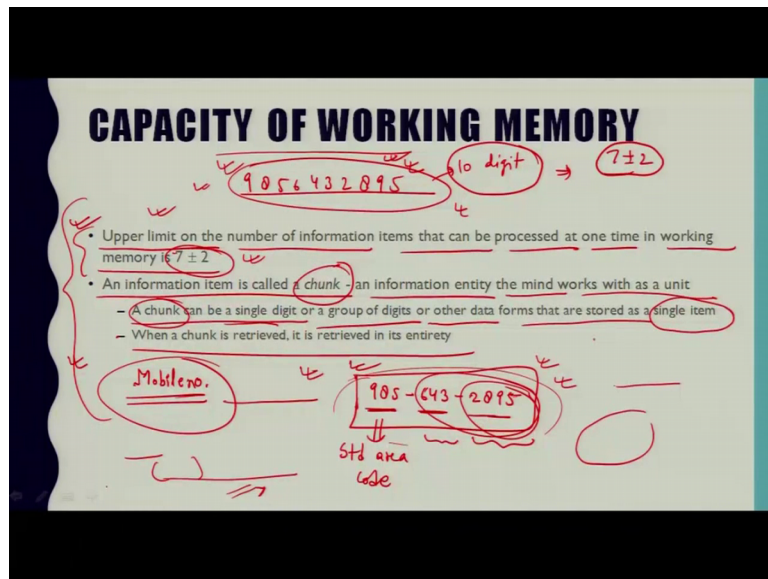 CAPACITY OF WORKING MEMORY
9856432895 10 digit ⇒ 7±2
• Upper limit on the number of information items that can be processed at one time in working
memory is 7 ± 2
• An information item is called a chunk - an information entity the mind works with as a unit
– A chunk can be a single digit or a group of digits or other data forms that are stored as a single item
– When a chunk is retrieved, it is retrieved in its entirety
Mobile no. 985-643-2895
Std area
code